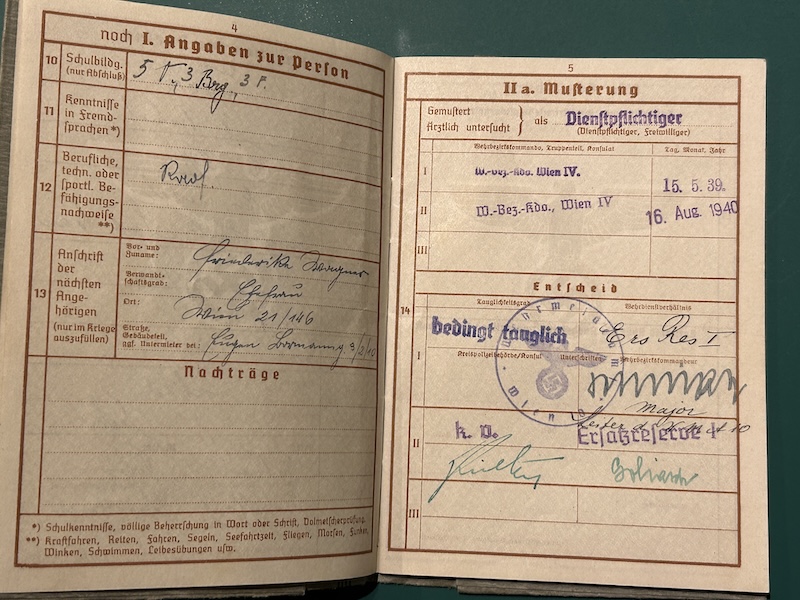 4
noch I. Angaben zur Person
10 Schulbildg.
(nur Abschluß)
5 V., 3 Brg., 3 F.
11 Kenntnisse
in Fremd-
sprachen *)
12 Berufliche,
techn. oder
sportl. Be-
fähigungs-
nachweise
**)
13 Anschrift
der
nächsten
Ange-
hörigen
(nur im Kriege
auszufüllen)
Vor- und
Zuname: Friederike Wagner
Verwandt-
schaftsgrad: Ehefrau
Ort: Wien 21/146
Straße,
Gebäudeteil,
ggf. Untermieter bei: Eugen
Nachträge
*) Schulkenntnisse, völlige Beherrschung in Wort oder Schrift, Dolmetscherprüfung.
**) Kraftfahren, Reiten, Fahren, Segeln, Seefahrtzeit, Fliegen, Morsen, Funken,
Winken, Schwimmen, Leibesübungen usw.
5
II a. Musterung
Gemustert
Ärztlich untersucht } als Dienstpflichtiger
(Dienstpflichtiger, Freiwilliger)
Wehrbezirkskommando, Truppenteil, Konsulat Tag, Monat, Jahr
I W.-Bez.-Kdo. Wien IV. 15. 5. 39.
II W.-Bez.-Kdo., Wien IV 16. Aug. 1940
III
Entscheid
14
Tauglichkeitsgrad Wehrdienstverhältnis
bedingt tauglich Ers Res I
I Kreispolizeibehörde/Konsul Unterschriften Wehrbezirkskommandeur
Major
Leiter d.
II k. v. Ersatzreserve I
III